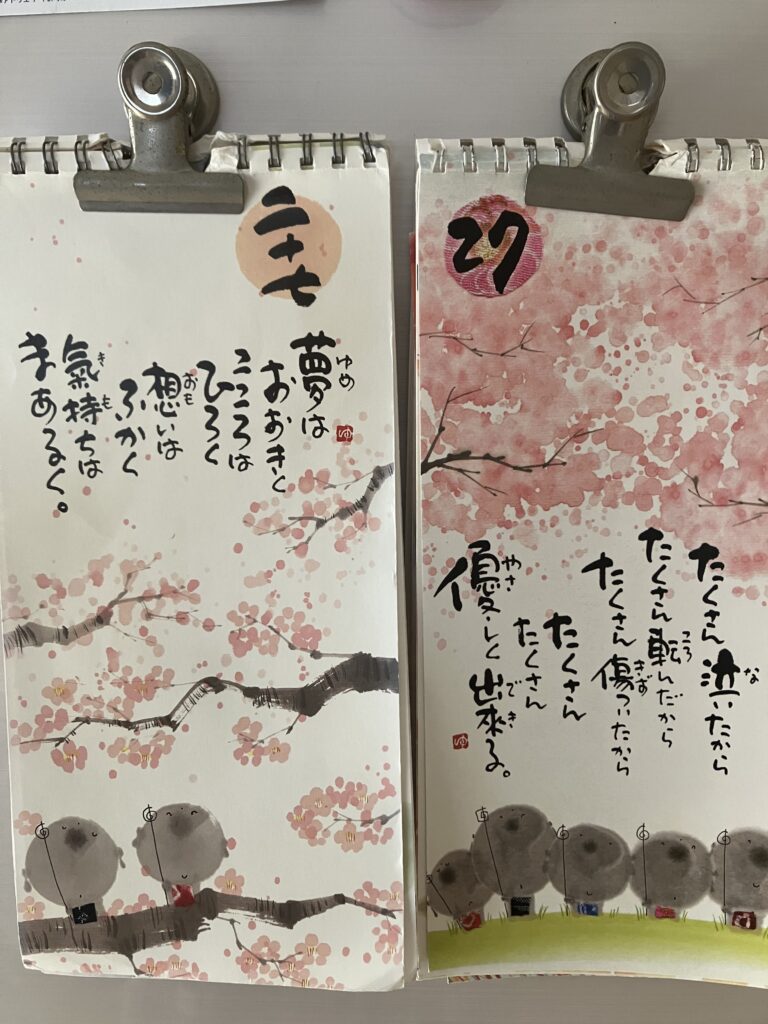 二十七
夢は
おおきく
こころは
ひろく
想いは
ふかく
氣持ちは
まあるく。
ゆめ
おも
き
も
ゆ
27
たくさん泣いたから
たくさん転んだから
たくさん傷ついたから
たくさん
たくさん
優しく出來る。
な
ころ
きず
やさ
で
き
ゆ